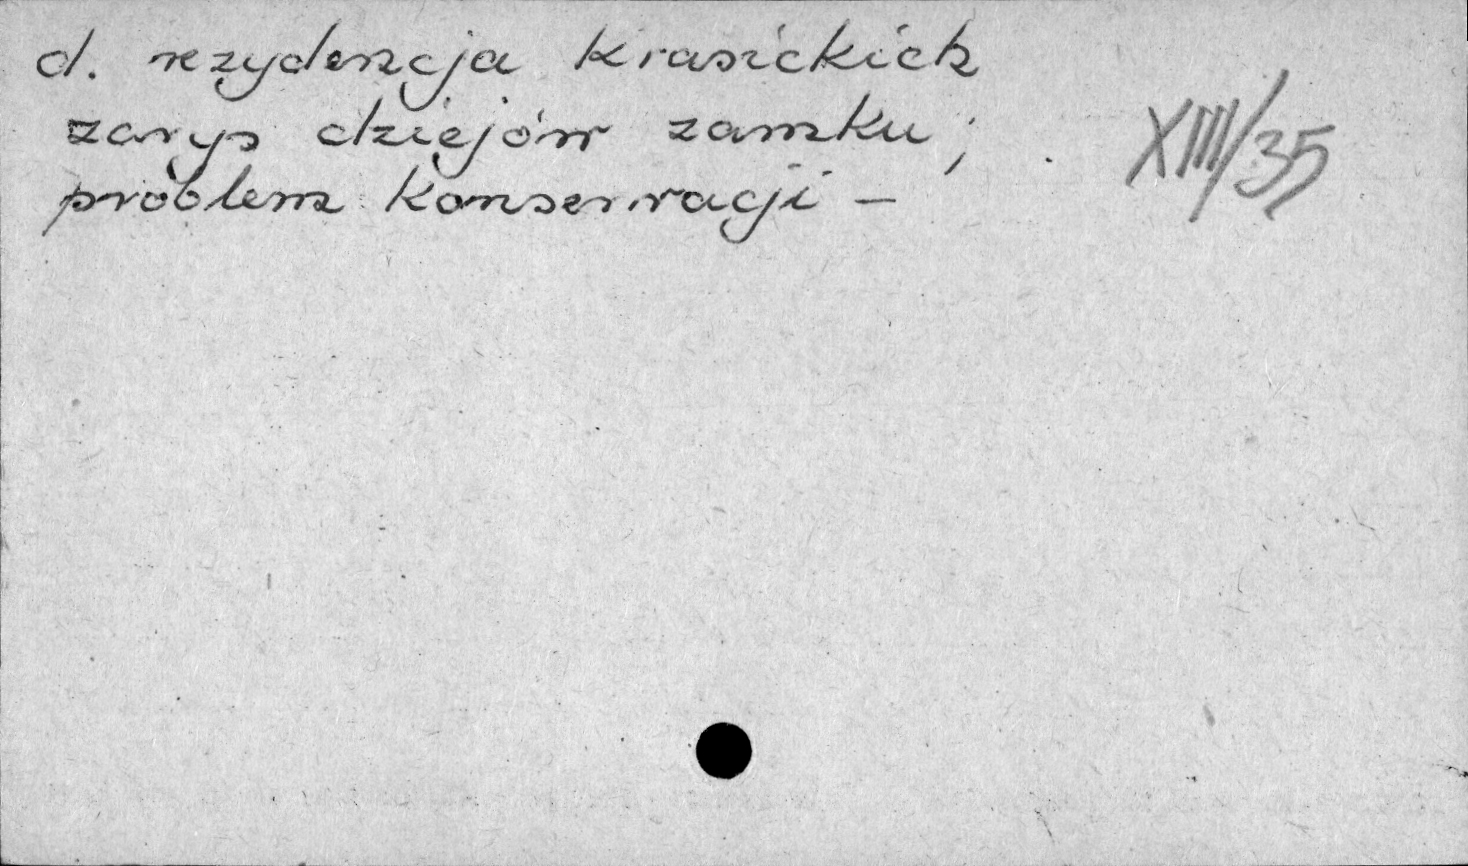 d. rezydencja Krasickich
zarys dziejów zamku;
problem konserwacji –
XIII/35